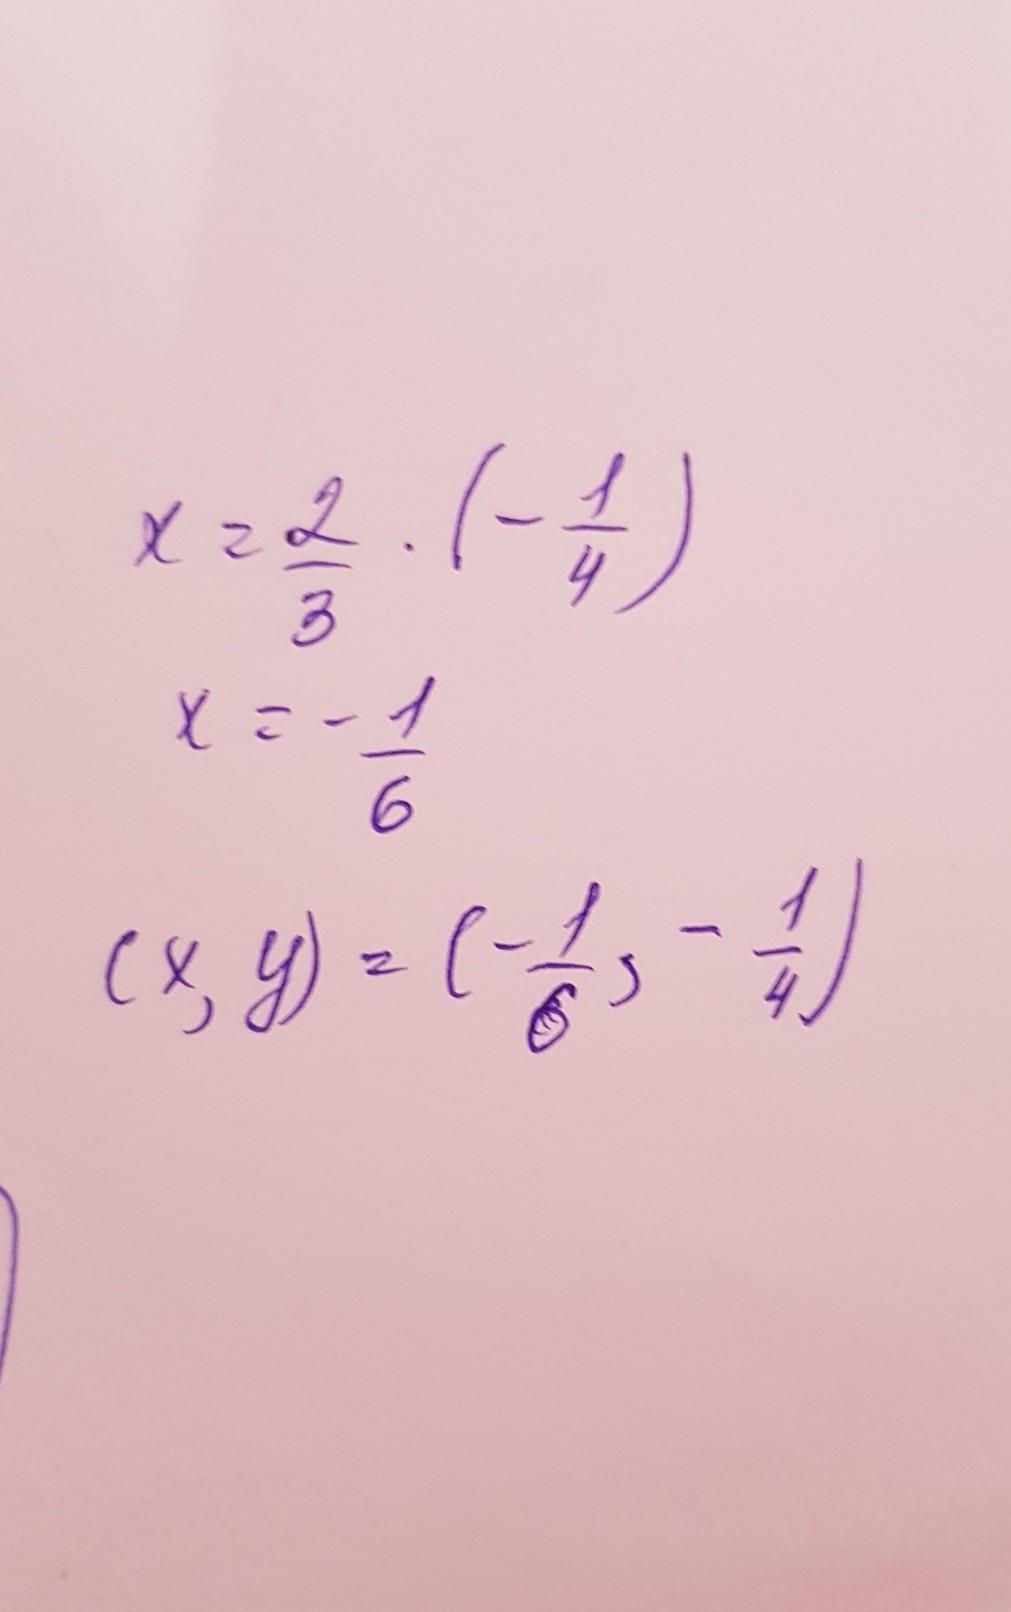 x = 2/3 · (- 1/4)
x = - 1/6
(x, y) = (- 1/6 ; - 1/4)